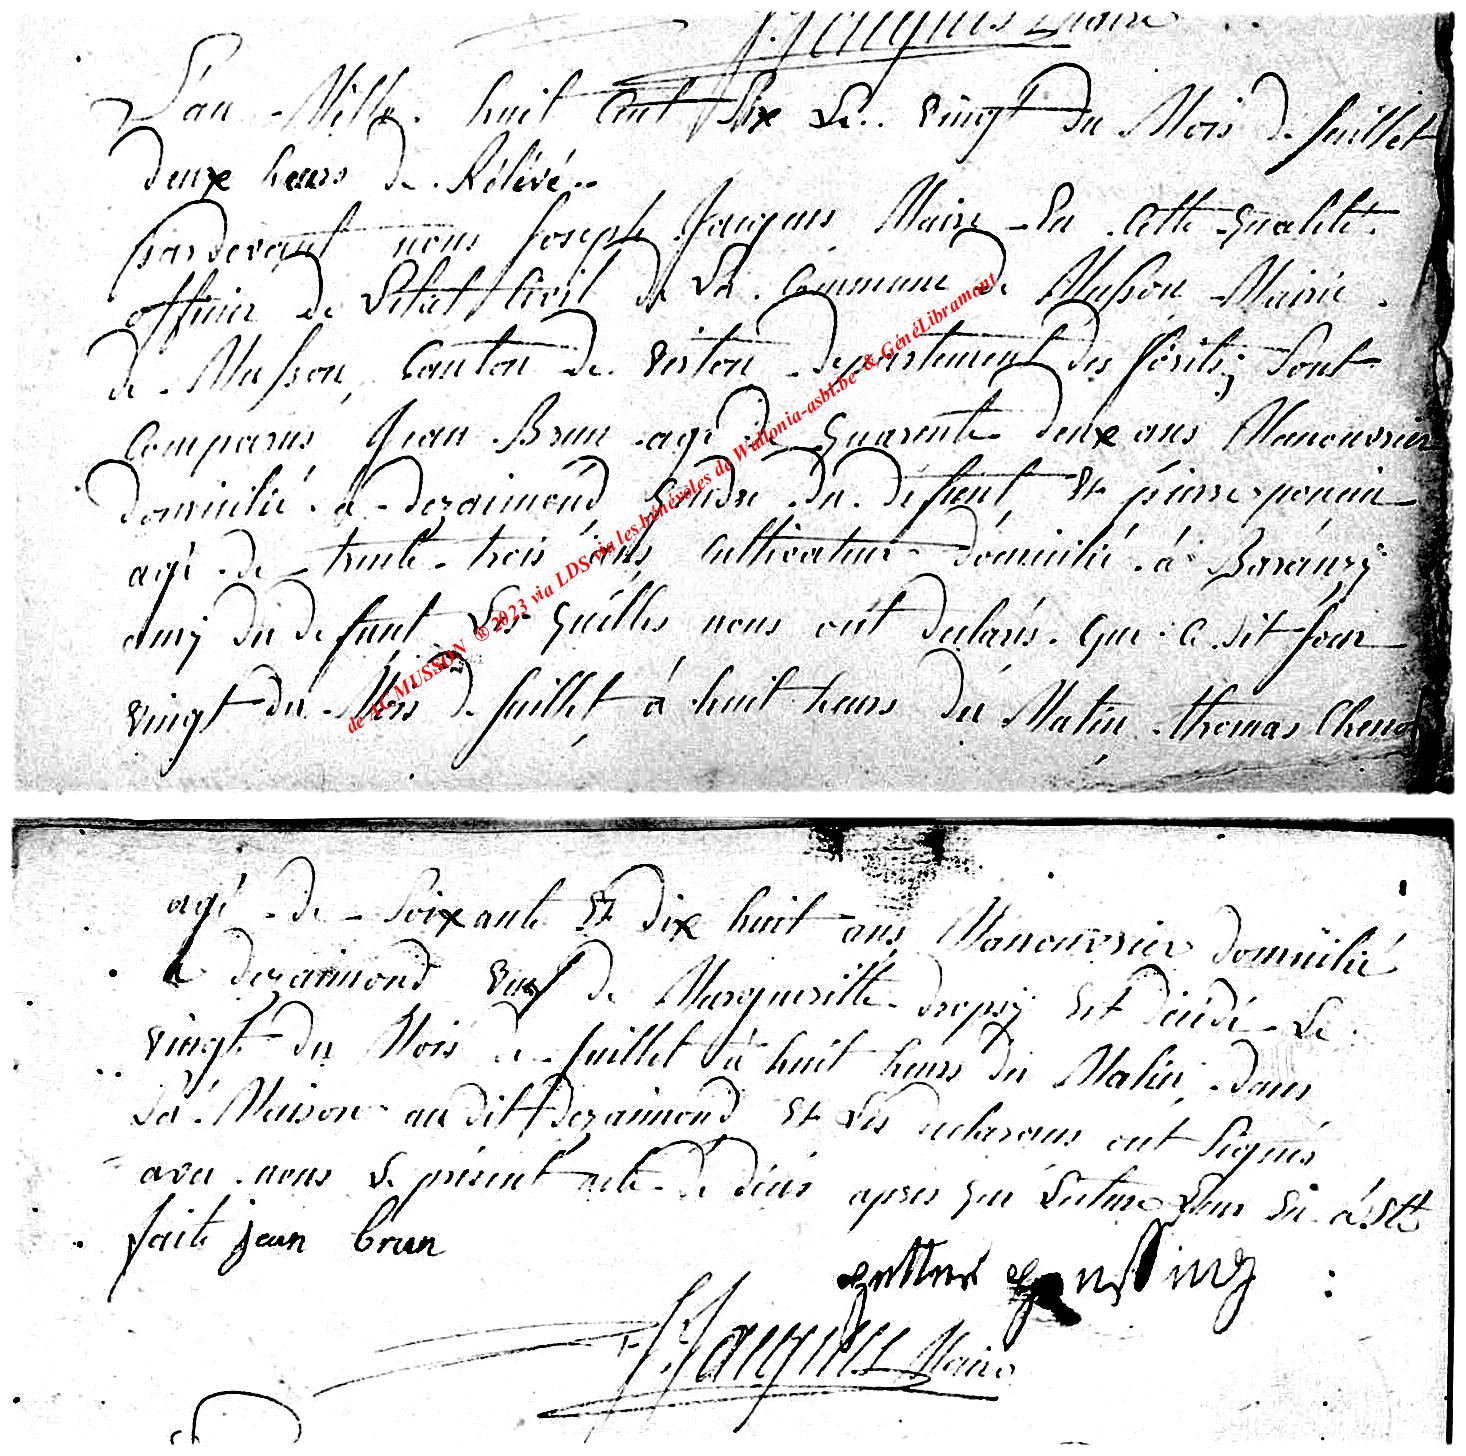 J. Jacques Maire
L'an Mille huit Cent Six Le vingt du Mois de Juillet
deux heurs de Rélévé..
pardevant nous Joseph Jacques Maire En Cette qualité
officier de L'état Civil de La Commune de Musson Mairie
de Musson, Canton de virton departement des forêts, Sont
Comparus Jean Brun agé de quarente deux ans Manouvrier
domicilié à dezaimond gendre du défunt, Et pierre
agé de trente trois ans cultivateur domicilié à Baranzy
amy du defunt Les quélles nous ont declarés que ce dit jour
vingt du Mois de Juillet à huit heurs du Matin thomas Chenot
de AC MUSSON ® 2023 via LDS via les bénévoles de Wallonia-asbl.be & GénéLibramont
agé de Soixante Et dix huit ans Manouvrier domicilié
à dezaimond veuf de Margueritte dropsy Est décédé Le
vingt du Mois de Juillet à huit heurs du Matin, dans
Sa Maison audit dezaimond Et Les declarans ont Signés
avec nous Le présent acte de décés apres que Lecture Leur En a Estés
faite jean brun
J. Jacques Maire